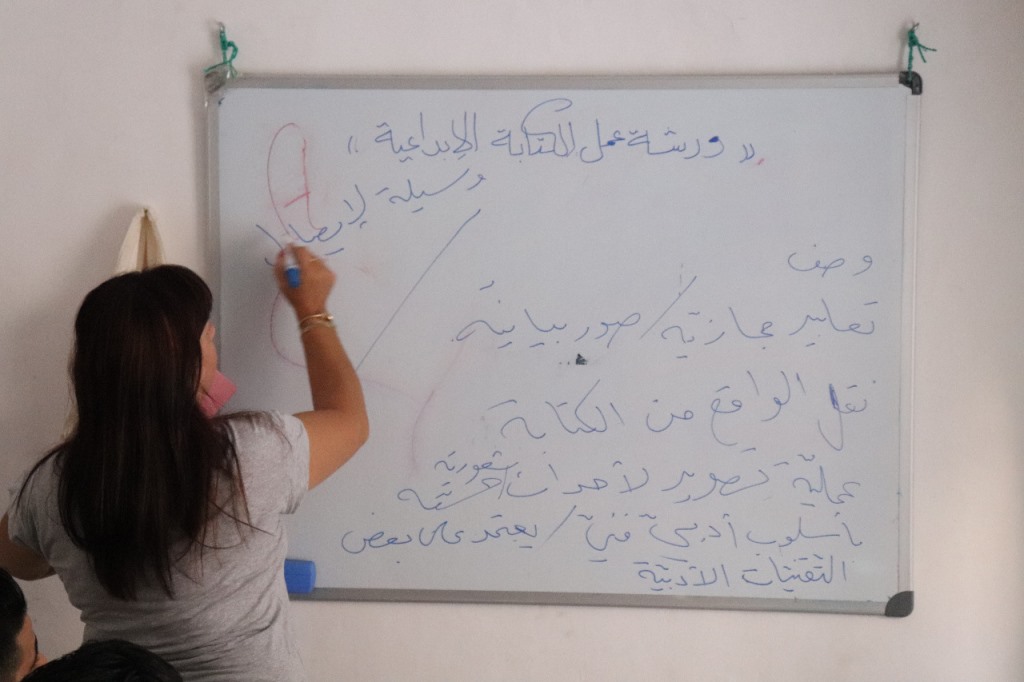 « ورشة عمل الكتابة الإبداعية »
وسيلة لإيصال
وصف
تعابير مجازية / صور بيانية
نقل الواقع من الكتابة
عمليّة تصوير لأحداث / شعورية
بأسلوب أدبيّ فنيّ / يعتمد على بعض
التقنيات الأدبيّة